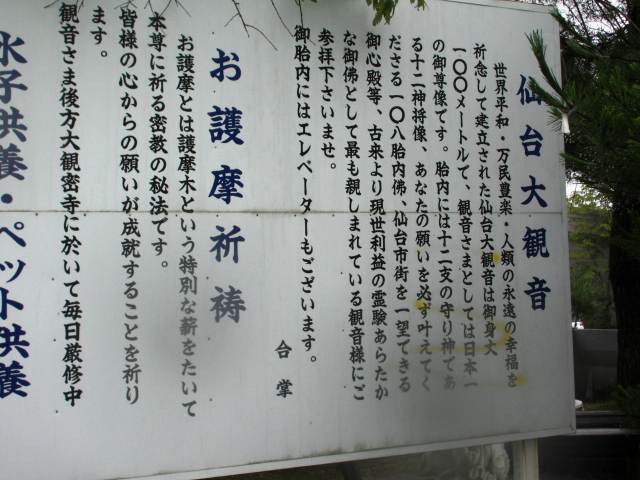 仙台大観音
世界平和・万民豊楽・人類の永遠の幸福を
祈念して建立された仙台大観音は御身大
一〇〇メートルて、観音さまとしては日本一
の御尊像です。胎内には十二支の守り神であ
る十二神将像、あなたの願いを必ず叶えてく
ださる一〇八胎内佛、仙台市街を一望できる
御心殿等、古来より現世利益の霊験あらたか
な御佛として最も親しまれている観音様にご
参拝下さいませ。
御胎内にはエレベーターもございます。
合掌
お護摩祈祷
お護摩とは護摩木という特別な薪をたいて
本尊に祈る密教の秘法です。
皆様の心からの願いが成就することを祈り
ます。
観音さま後方大観密寺に於いて毎日厳修中
水子供養・ペット供養